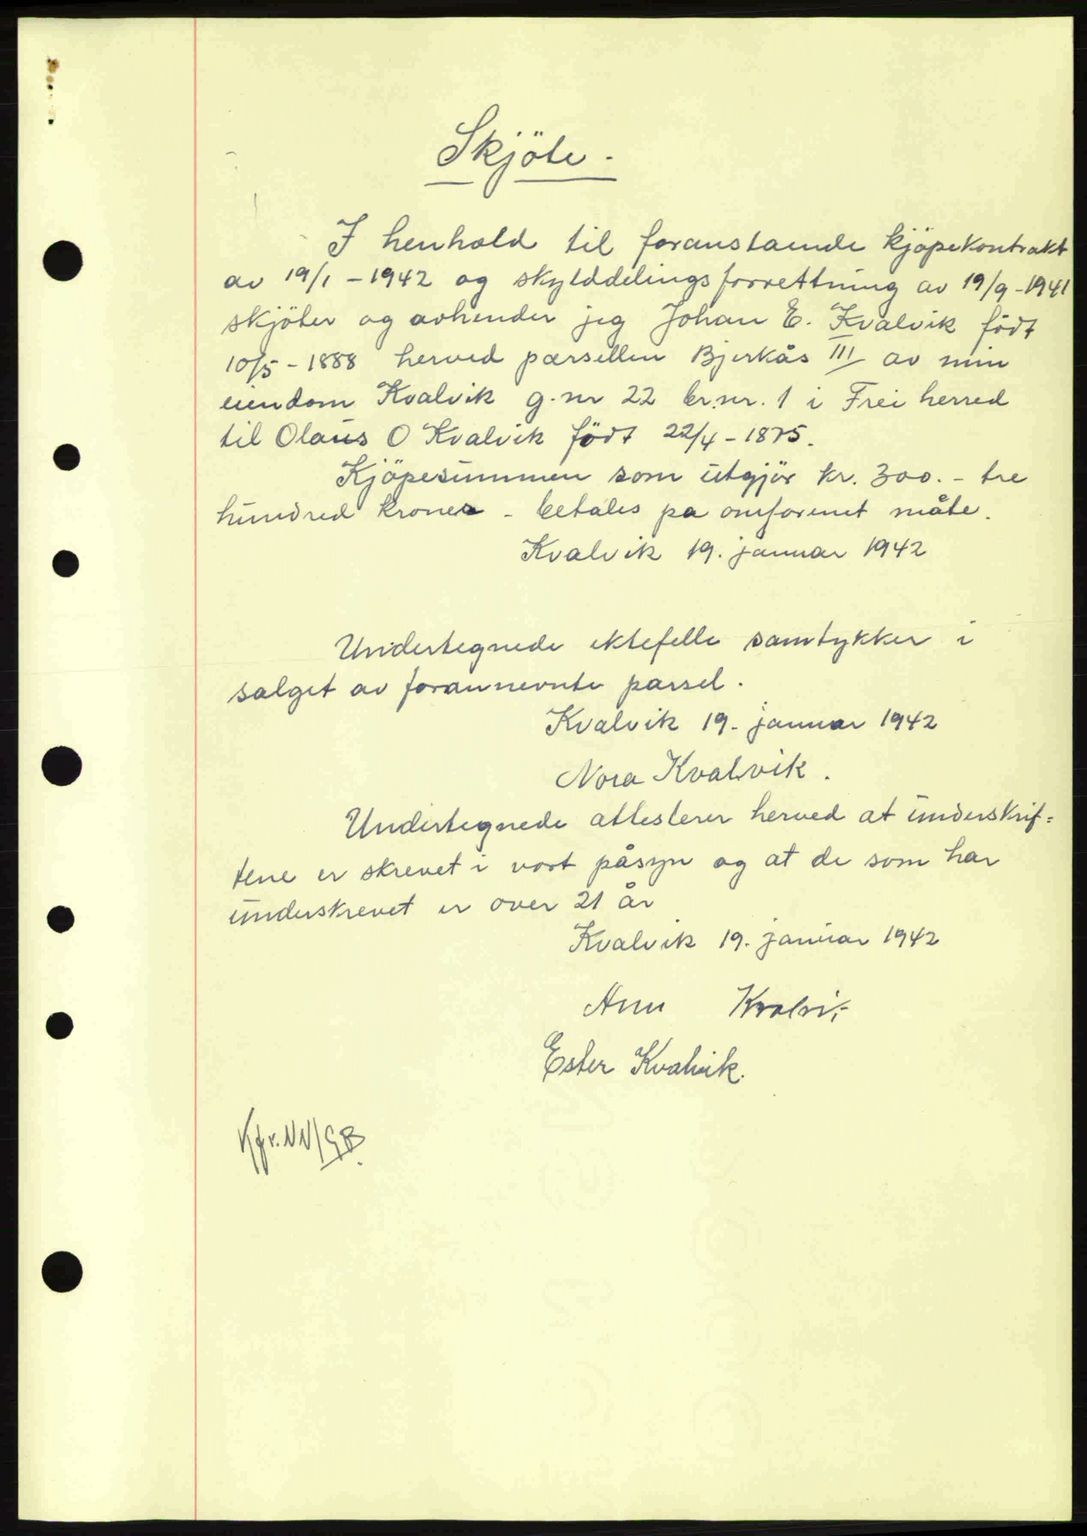 Skjöte.
I henhold til foranstaende kjöpekontrakt
av 19/1 - 1942 og skylddelingsforrettning av 19/9 - 1941
skjöter og avhender jeg Johan E. Kvalvik födt
10/5 - 1888 herved parsellen Bjerkås III av min
eiendom Kvalvik g.nr 22 br.nr. 1 i Frei herred
til Olaus O Kvalvik födt 22/4 - 1875.
Kjöpesummen som utgjör kr. 300. - tre
hundred kroner - betales pa omforenet måte.
Kvalvik 19. januar 1942
Undertegnede ektefelle samtykker i
salget av forannevnte parsel.
Kvalvik 19. januar 1942
Nora Kvalvik.
Undertegnede attesterer herved at underskrif=
tene er skrevet i vort påsyn og at de som har
underskrevet er over 21 år
Kvalvik 19. januar 1942
Kvalvik
Ester Kvalvik.
Kfr. NN/GB.